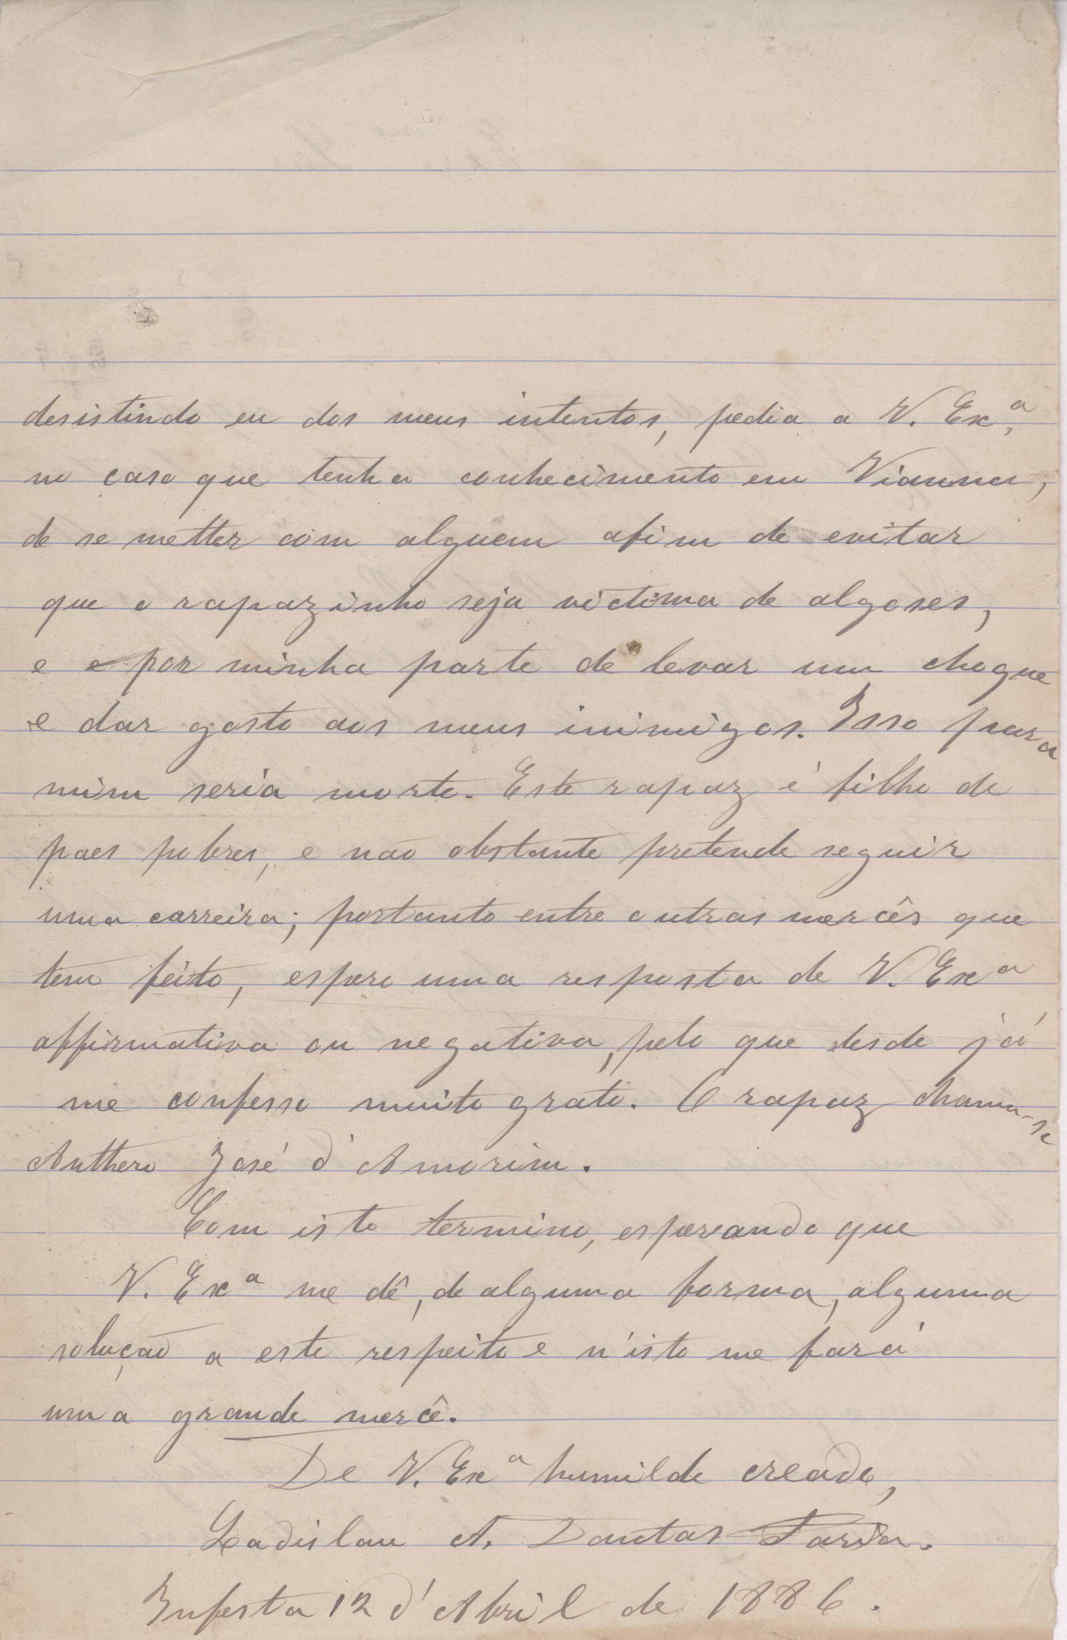 desistindo eu dos meus intentos, pedia a V. Exª,
no caso que tenha conhecimento em Vianna,
de se metter com alguem afim de evitar
que o rapazinho seja victima de algoses,
e e por minha parte de levar um choque
e dar gosto aos meus inimigos. Isso para
mim seria morte. Este rapaz é filho de
paes pobres, e não obstante pretende seguir
uma carreira; portanto entre outras mercês que
tem feito, espero uma resposta de V. Exª
affirmativa ou negativa, pelo que desde já
me confesso muito grato. O rapaz chama-se
Anthero José d'Amorim.
Com isto termino, esperando que
V. Exª me dê, de alguma forma, alguma
solução a este respeito e n'isto me fará
uma grande mercê.
De V. Exª humilde creado,
Ladislau A. Dantas Faria.
Infesta 12 d'Abril de 1886.